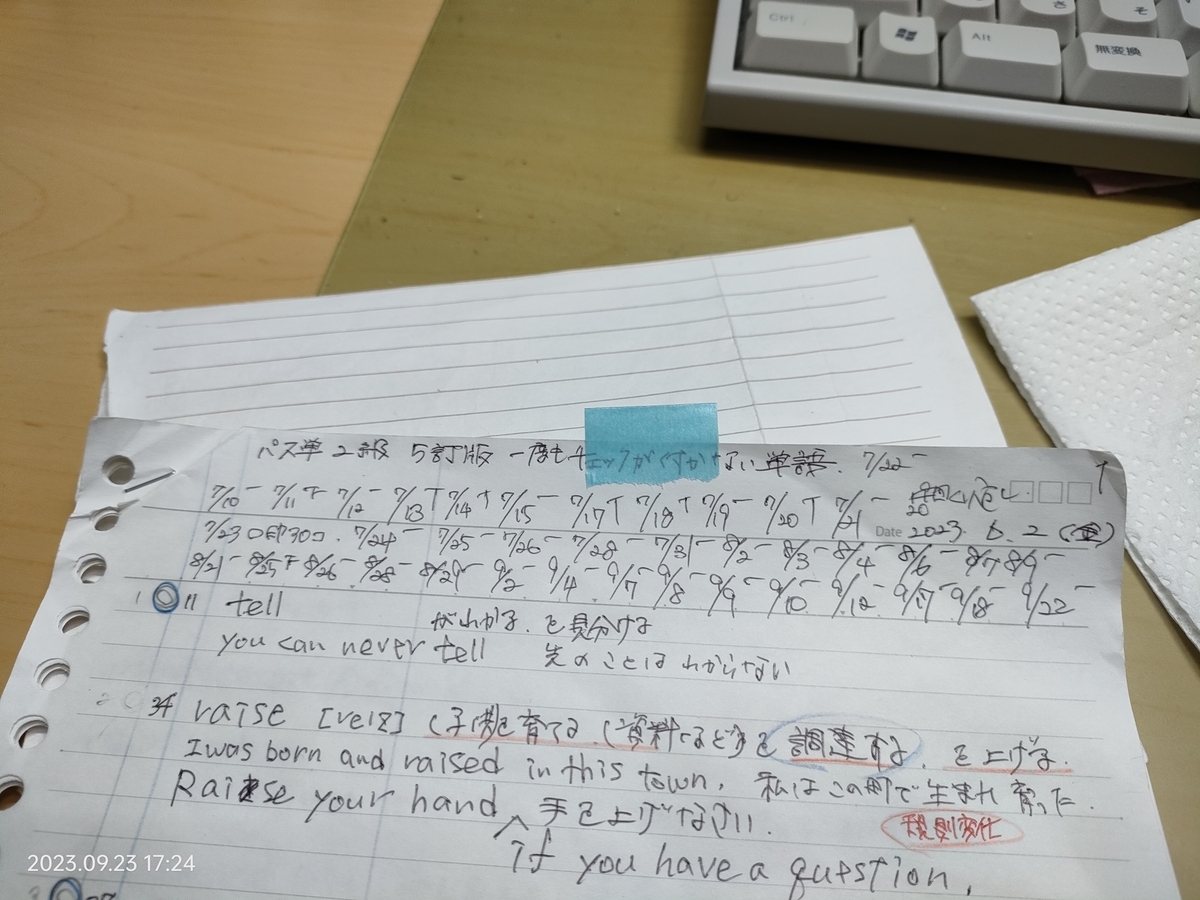 Ctrl
Alt
無変換
さ
そ
パス単 2級 5訂版 一度もチェックがつかない単語. 7/22-
7/10- 7/11T 7/12- 7/13T 7/14↑ 7/15- 7/17↑ 7/18↑ 7/19- 7/20↑ 7/21-
Date 2023. 6. 2 (金)
7/23 7/24- 7/25- 7/26- 7/28- 7/31- 8/2- 8/3- 8/4- 8/6- 8/7- 8/9-
8/21- 8/25T 8/26- 8/28- 8/29- 9/2- 9/4- 9/7- 9/8- 9/9- 9/10- 9/12- 9/17- 9/18- 9/22-
1 11 tell がわかる. を見分ける
you can never tell 先のことはわからない
2 34 raise [reiz] (子供を育てる. (資料などを調達する. を上げる.
I was born and raised in this town. 私はこの町で生まれ育った.
Raise your hand 手を上げなさい. 規則変化
if you have a question.
3
2023.09.23 17:24